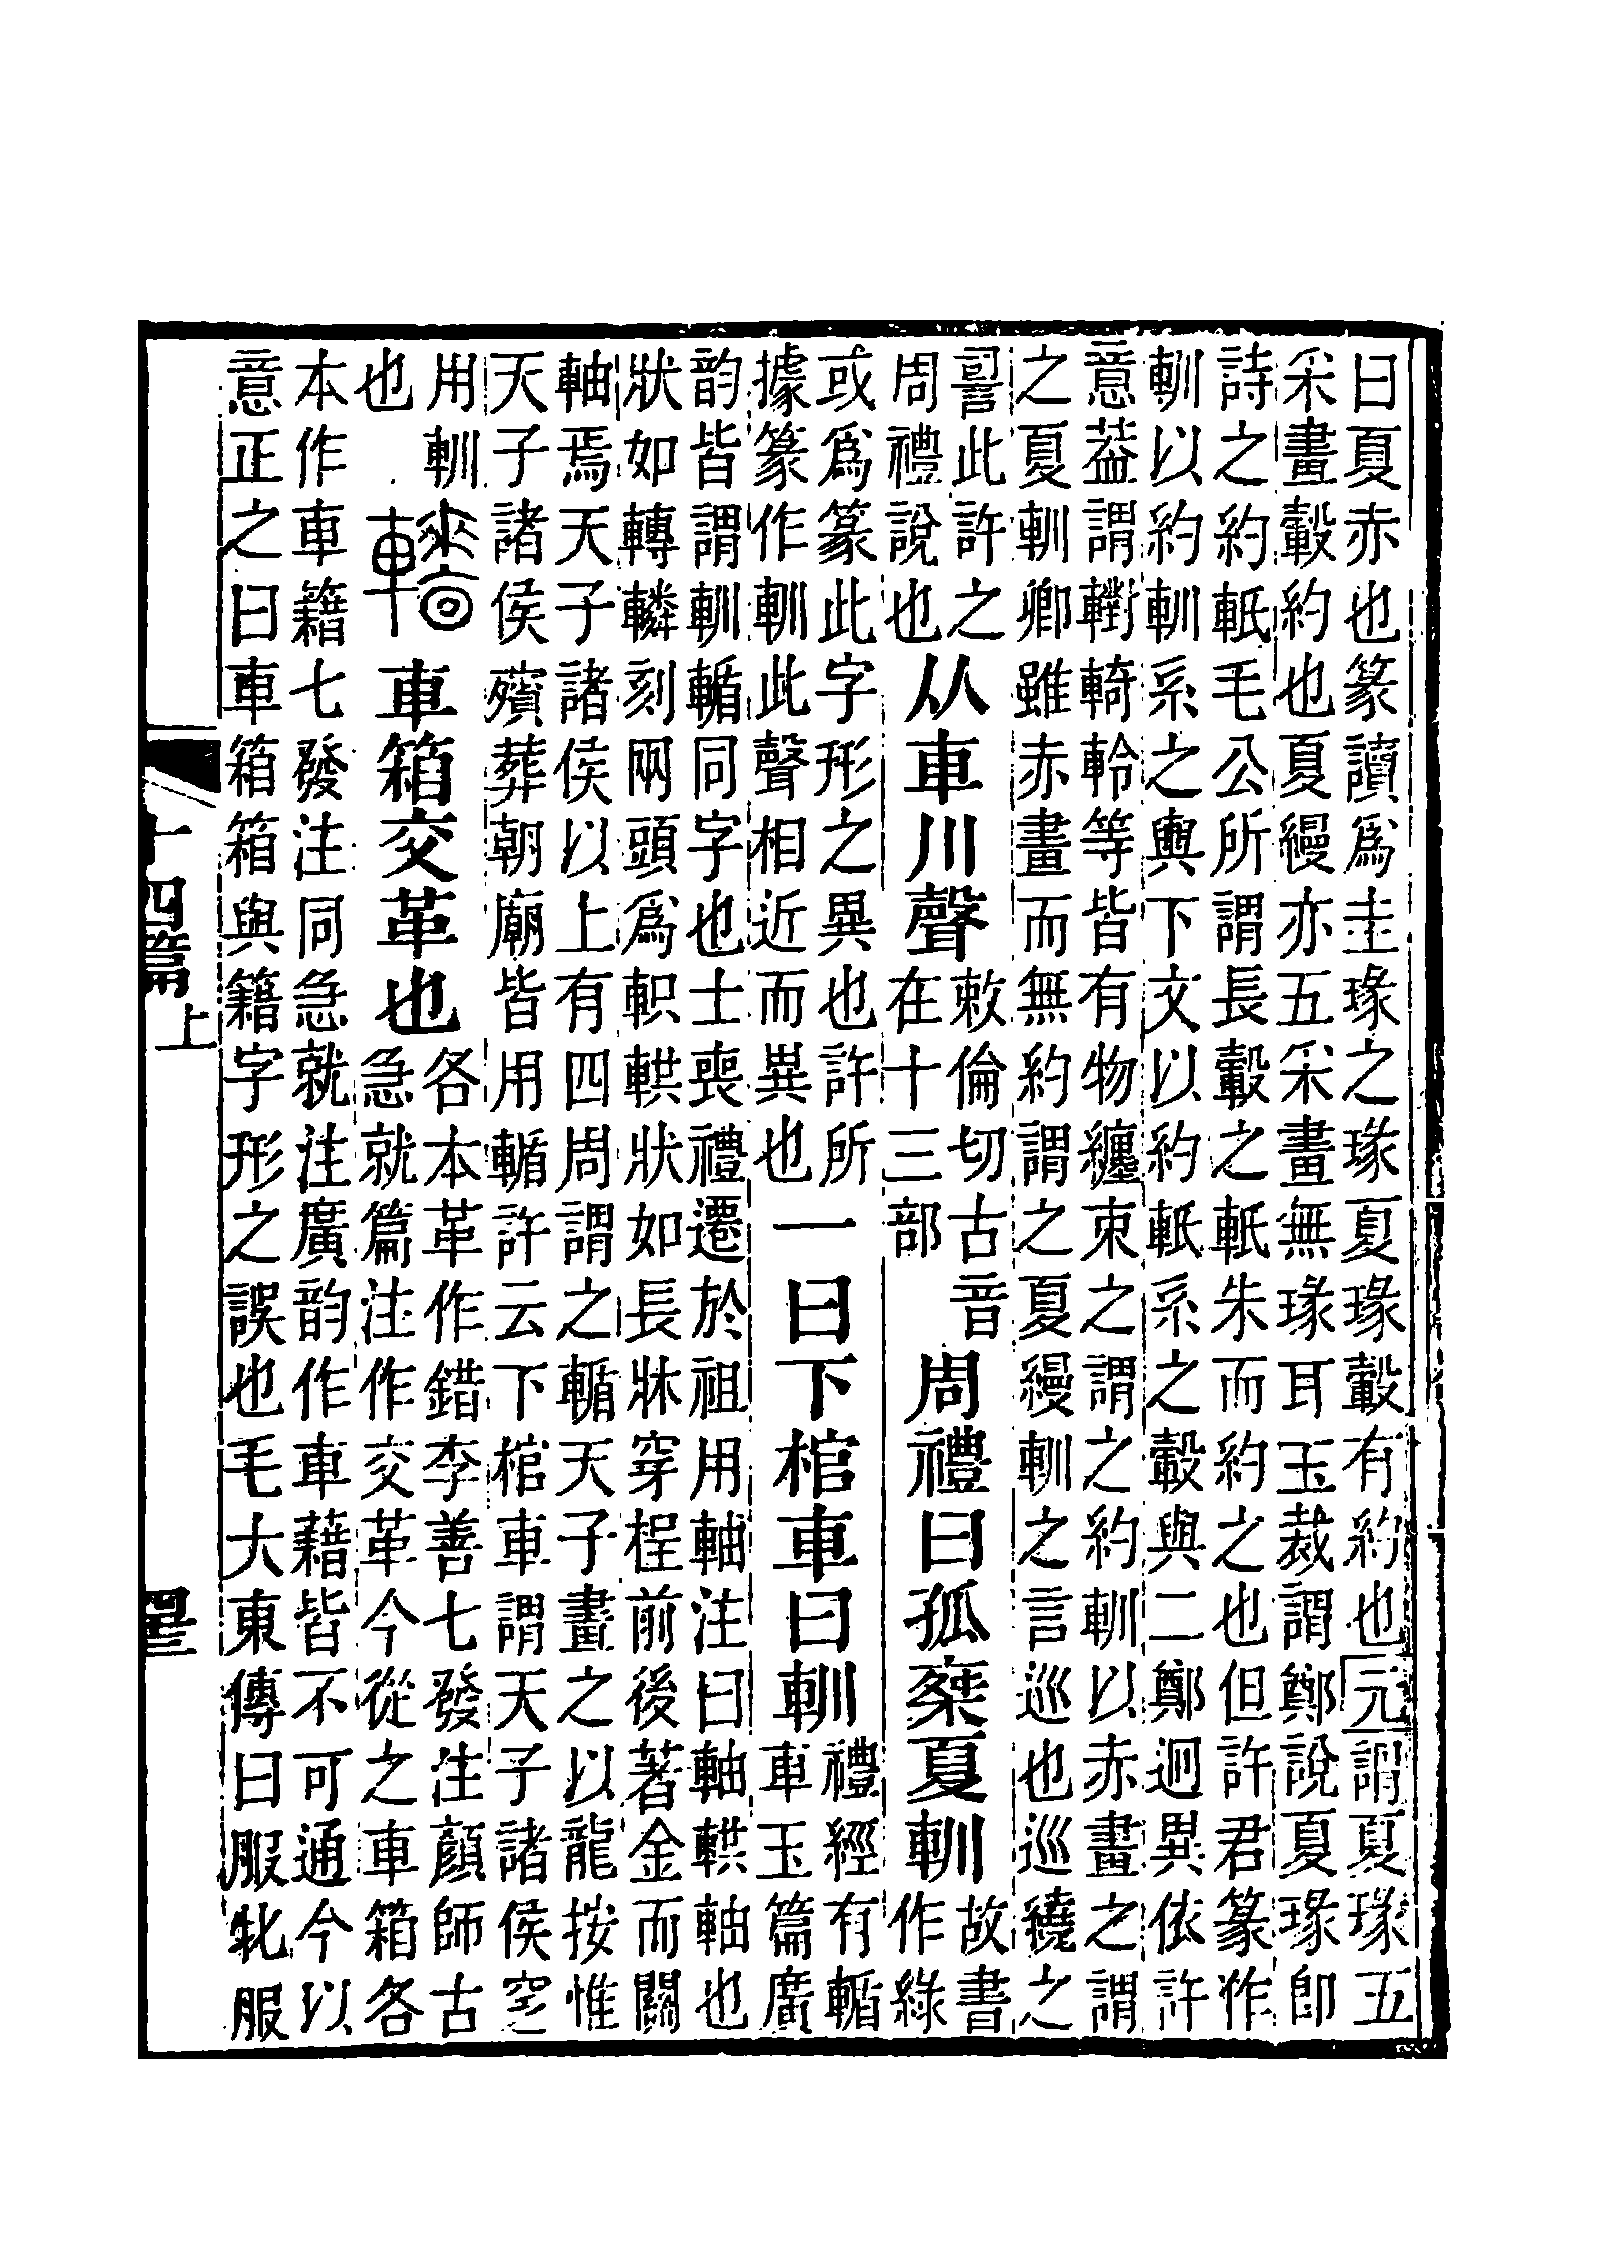 曰夏赤也篆讀爲圭瑑之瑑夏瑑轂有約也元謂夏瑑五
采畫轂約也夏縵亦五采畫無瑑耳玉裁謂鄭說夏瑑卽
詩之約軝毛公所謂長轂之軝朱而約之也但許君篆作
䡅以約䡅系之輿下文以約軝系之轂與二鄭迥異依許
意葢謂轛輢軨等皆有物纏束之謂之約䡅以赤畫之謂
之夏䡅卿雖赤畫而無約謂之夏縵䡅之言巡也巡繞之
䛐此許之
周禮說也
从車川聲
敕倫切古音
在十三部
周禮曰孤椉夏䡅
故書
作綠
或爲篆此字形之異也許所
據篆作䡅此聲相近而異也
一曰下棺車曰䡅
禮經有輴
車玉篇廣
韵皆謂䡅輴同字也士喪禮遷於祖用軸注曰軸輁軸也
狀如轉轔刻兩頭爲軹輁狀如長牀穿桯前後著金而關
軸焉天子諸侯以上有四周謂之輴天子畫之以龍按惟
天子諸侯殯葬朝廟皆用輴許云下棺車謂天子諸侯窆
用䡅
也
轖
車箱交革也
各本革作錯李善七發注顏師古
急就篇注作交革今從之車箱各
本作車籍七發注同急就注廣韵作車藉皆不可通今以
意正之曰車箱箱與籍字形之誤也毛大東傳曰服牝服
十四篇上
四十三